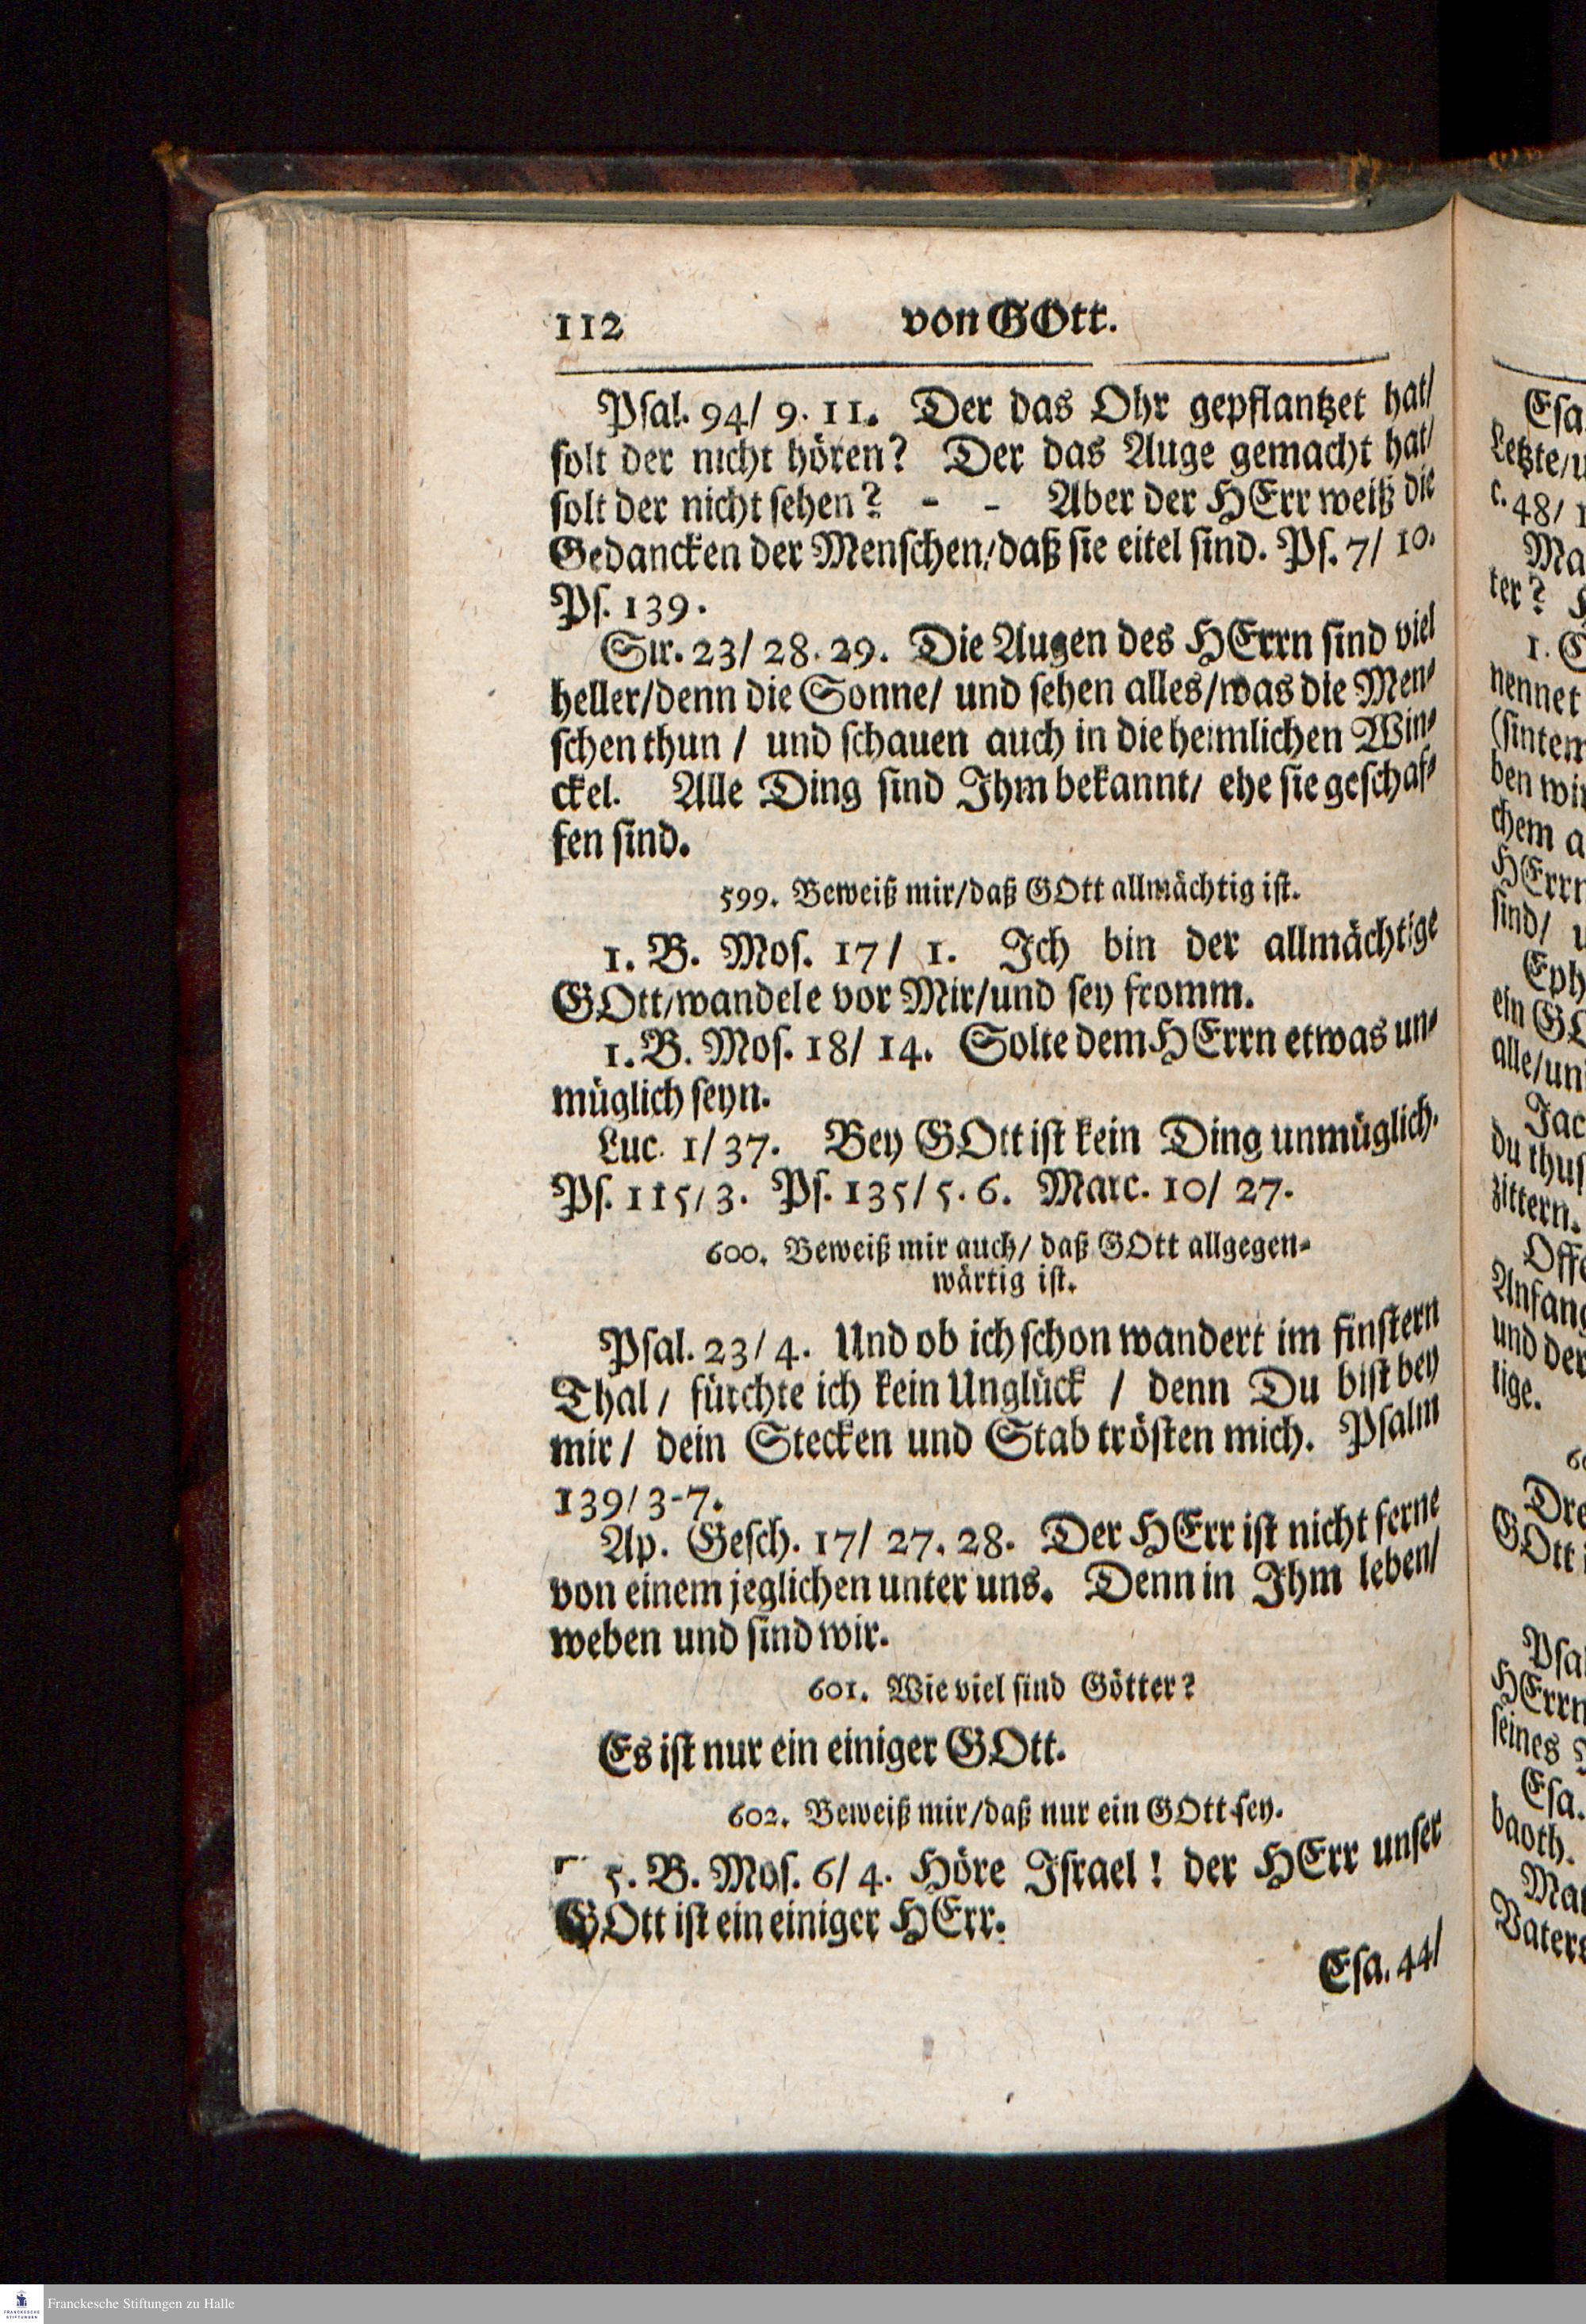 112 von GOtt.
Psal. 94/ 9. 11. Der das Ohr gepflantzet hat/
solt der nicht hören? Der das Auge gemacht hat/
solt der nicht sehen? - - Aber der HErr weiß die
Gedancken der Menschen/daß sie eitel sind. Ps. 7/ 10.
Ps. 139.
Sir. 23/ 28. 29. Die Augen des HErrn sind viel
heller/denn die Sonne/ und sehen alles/was die Men-
schen thun / und schauen auch in die heimlichen Win-
ckel. Alle Ding sind Ihm bekannt/ ehe sie geschaf-
fen sind.
599. Beweiß mir/daß GOtt allmächtig ist.
1. B. Mos. 17/ 1. Ich bin der allmächtige
GOtt/wandele vor Mir/und sey fromm.
1. B. Mos. 18/ 14. Solte dem HErrn etwas un-
müglich seyn.
Luc. 1/ 37. Bey GOtt ist kein Ding unmüglich.
Ps. 115/ 3. Ps. 135/ 5. 6. Marc. 10/ 27.
600. Beweiß mir auch/ daß GOtt allgegen-
wärtig ist.
Psal. 23/ 4. Und ob ich schon wandert im finstern
Thal/ fürchte ich kein Unglück / denn Du bist bey
mir/ dein Stecken und Stab trösten mich. Psalm
139/ 3-7.
Ap. Gesch. 17/ 27. 28. Der HErr ist nicht ferne
von einem jeglichen unter uns. Denn in Ihm leben/
weben und sind wir.
601. Wie viel sind Götter?
Es ist nur ein einiger GOtt.
602. Beweiß mir/daß nur ein GOtt sey.
5. B. Mos. 6/ 4. Höre Israel! der HErr unser
GOtt ist ein einiger HErr.
Esa. 44/
Esa.
Letzte/u
c. 48/ 1
Ma
ter?
1. C
nennet
(sintem
ben wir
chem a
HErrn
sind/ u
Eph
ein GO
alle/un
Jac
du thus
zittern.
Offe
Anfang
und der
lige.
Dre
GOtt i
Psal
HErrn
seines
Esa.
baoth.
Mat
Vaters
Franckesche Stiftungen zu Halle